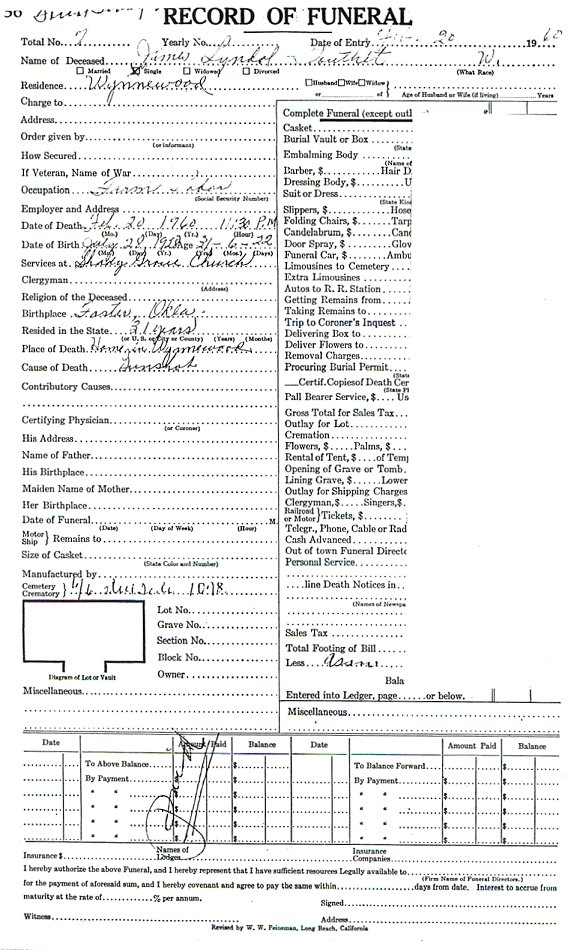 RECORD OF FUNERAL
Total No. 7 Yearly No. Date of Entry 20 1960
Name of Deceased James Lyndol W.
☐ Married ☒ Single ☐ Widowed ☐ Divorced (What Race)
Residence Wynnewood ☐Husband☐Wife☐Widow
or of Age of Husband or Wife (if living) Years
Charge to
Address
Order given by
(or informant)
How Secured
If Veteran, Name of War
Occupation Farm Labor
(Social Security Number)
Employer and Address
Date of Death Feb. 20 1960 11:30 P.M
(Mo.) (Day) (Yr.) (Hour)
Date of Birth July 28, Age 31-6-22
(Mo.) (Day) (Yr.) (Yrs) (Mos.) (Days)
Services at Shady Grove Church
Clergyman
(Address)
Religion of the Deceased
Birthplace Foster, Okla.
Resided in the State 31 years
(or U. S. or City or County) (Years) (Months)
Place of Death Home in Wynnewood
Cause of Death Gunshot
Contributory Causes
Certifying Physician
(or Coroner)
His Address
Name of Father
His Birthplace
Maiden Name of Mother
Her Birthplace
Date of Funeral M.
(Date) (Day of Week) (Hour)
Motor
Ship } Remains to
Size of Casket
(State Color and Number)
Manufactured by
Cemetery
Crematory
Lot No.
Grave No.
Section No.
Block No.
Owner
Diagram of Lot or Vault
Miscellaneous
Complete Funeral (except outl
Casket
Burial Vault or Box
(State
Embalming Body
(Name of
Barber, $ Hair D
Dressing Body, $ U
Suit or Dress
(State Kind
Slippers, $ Hose
Folding Chairs, $ Tarp
Candelabrum, $ Cand
Door Spray, $ Glov
Funeral Car, $ Ambu
Limousines to Cemetery
Extra Limousines
Autos to R. R. Station
Getting Remains from
Taking Remains to
Trip to Coroner's Inquest
Delivering Box to
Deliver Flowers to
Removal Charges
Procuring Burial Permit
(State
Certif. Copies of Death Cer
(State Pl
Pall Bearer Service, $ Us
Gross Total for Sales Tax
Outlay for Lot
Cremation
Flowers, $ Palms, $
Rental of Tent, $ of Temp
Opening of Grave or Tomb
Lining Grave, $ Lower
Outlay for Shipping Charges
Clergyman, $ Singers, $
Railroad
or Motor } Tickets, $
Telegr., Phone, Cable or Rad
Cash Advanced
Out of town Funeral Directo
Personal Service
line Death Notices in
(Names of Newspa
Sales Tax
Total Footing of Bill
Less
Bala
Entered into Ledger, page or below.
Miscellaneous
Date Amount Paid Balance Date Amount Paid Balance
To Above Balance $ To Balance Forward $
By Payment $ By Payment $
" " $ " " $
" " $ " " $
" " $ " " $
" " $ " " $
Insurance $ Names of Lodges Insurance Companies
I hereby authorize the above Funeral, and I hereby represent that I have sufficient resources Legally available to
(Firm Name of Funeral Directors.)
for the payment of aforesaid sum, and I hereby covenant and agree to pay the same within days from date. Interest to accrue from
maturity at the rate of % per annum. Signed
Witness Address
Revised by W. W. Feinsman, Long Beach, California